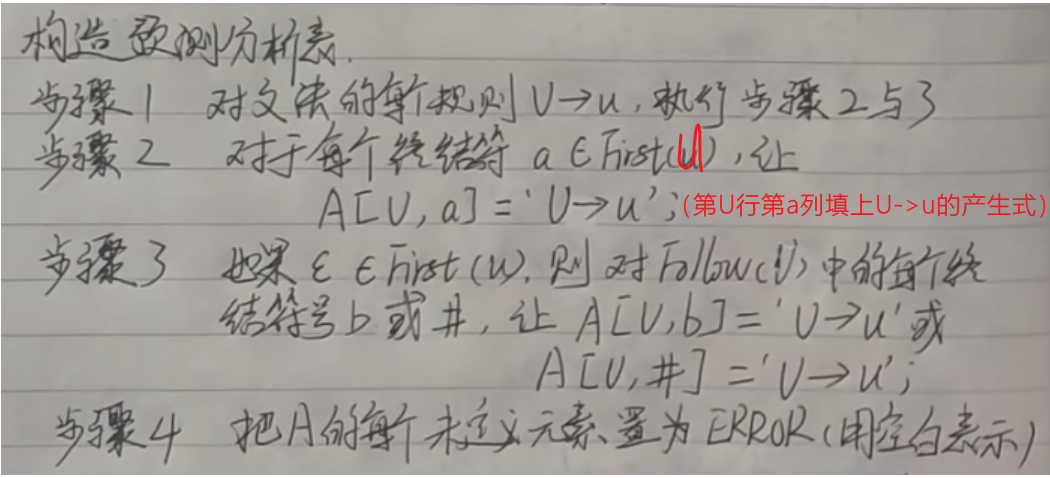 构造预测分析表.
步骤1 对文法的每个规则U→u,执行步骤2与3
步骤2 对于每个终结符a∈First(u),让
A[U,a]='U→u';(第U行第a列填上U->u的产生式)
步骤3 如果ε∈First(u),则对Follow(U)中的每个终
结符号b或#,让A[U,b]='U→u'或
A[U,#]='U→u';
步骤4 把A的每个未定义元素置为ERROR(用空白表示)